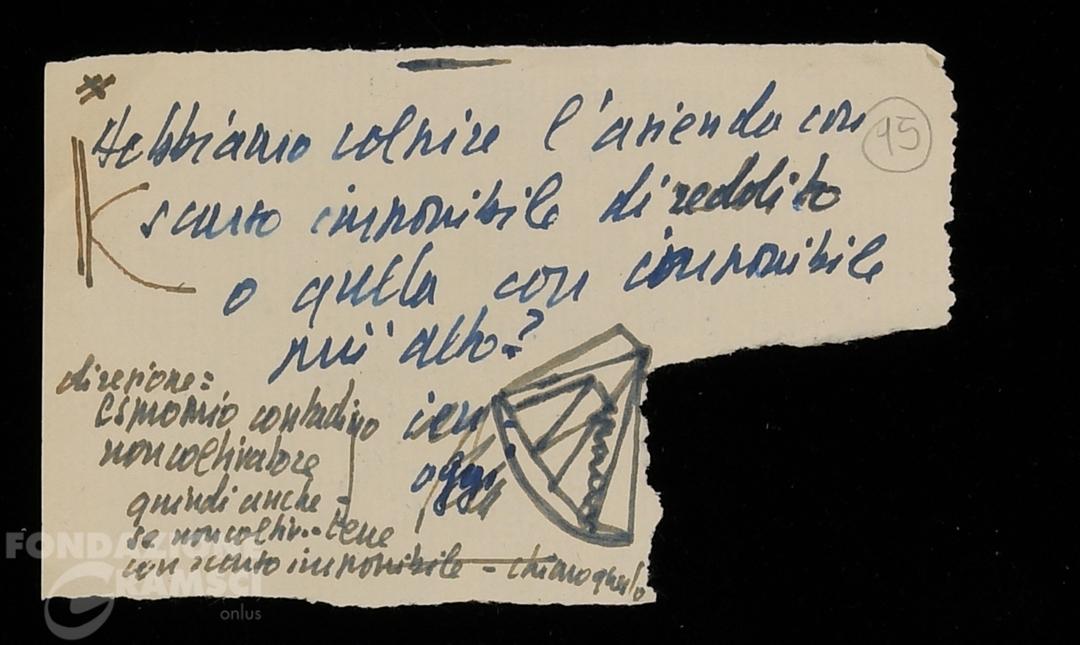 Dobbiamo colpire l'azienda con
15
scarso imponibile di reddito
o quella con imponibile
più alto?
direzione:
Esproprio contadino
non coltivatore
quindi anche -
se non coltiv. - terre
con scarso imponibile - chiaro questo
ieri
oggi
FONDAZIONE
GRAMSCI
onlus